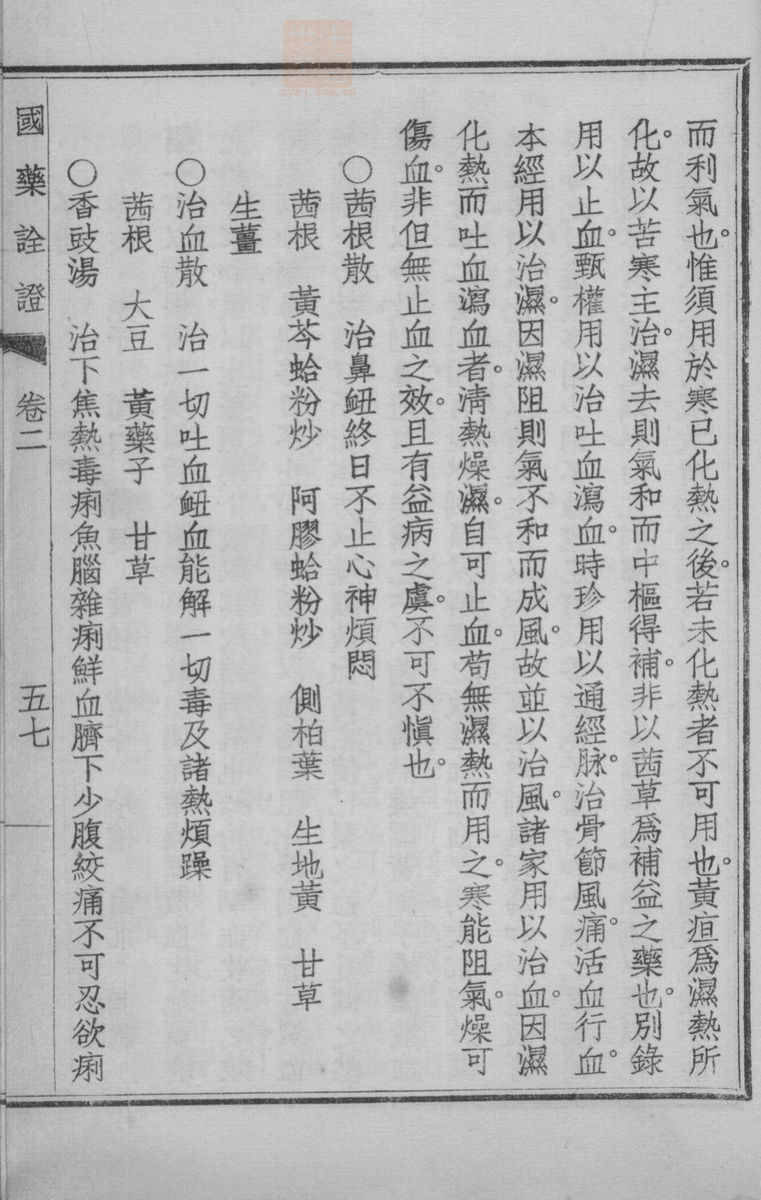 而利氣也。惟須用於寒已化熱之後。若未化熱者不可用也。黃疸爲濕熱所
化。故以苦寒主治。濕去則氣和而中樞得補。非以茜草爲補益之藥也。別錄
用以止血。甄權用以治吐血瀉血。時珍用以通經脉。治骨節風痛。活血行血。
本經用以治濕。因濕阻則氣不和而成風。故並以治風。諸家用以治血。因濕
化熱而吐血瀉血者。淸熱燥濕。自可止血。苟無濕熱而用之。寒能阻氣。燥可
傷血。非但無止血之效。且有益病之虞。不可不愼也。
○茜根散　治鼻衄終日不止心神煩悶
茜根　黃芩蛤粉炒　阿膠蛤粉炒　側柏葉　生地黃　甘草
生薑
○治血散　治一切吐血衄血能解一切毒及諸熱煩躁
茜根　大豆　黃藥子　甘草
○香豉湯　治下焦熱毒痢魚腦雜痢鮮血臍下少腹絞痛不可忍欲痢
國藥詮證　卷二　五七